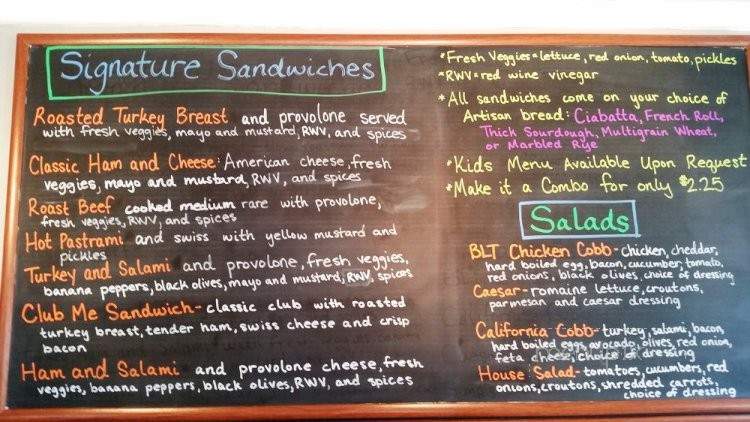 Signature Sandwiches
Roasted Turkey Breast and provolone served
with fresh veggies, mayo and mustard, RWV, and spices
Classic Ham and Cheese: American cheese, fresh
veggies, mayo and mustard, RWV, and spices
Roast Beef cooked medium rare with provolone,
fresh veggies, RWV, and spices
Hot Pastrami and swiss with yellow mustard and
pickles
Turkey and Salami and provolone, fresh veggies,
banana peppers, black olives, mayo and mustard, RWV, spices
Club Me Sandwich- classic club with roasted
turkey breast, tender ham, swiss cheese and crisp
bacon
Ham and Salami and provolone cheese, fresh
veggies, banana peppers, black olives, RWV, and spices
*Fresh Veggies=lettuce, red onion, tomato, pickles
*RWV=red wine vinegar
*All sandwiches come on your choice of
Artisan bread: Ciabatta, French Roll,
Thick Sourdough, Multigrain Wheat,
or Marbled Rye
*Kids Menu Available Upon Request
*Make it a Combo for only $2.25
Salads
BLT Chicken Cobb- chicken, cheddar,
hard boiled egg, bacon, cucumber, tomato,
red onions, black olives, choice of dressing
Caesar- romaine lettuce, croutons,
parmesan and caesar dressing
California Cobb- turkey, salami, bacon,
hard boiled eggs, avocado, olives, red onion,
feta cheese, choice of dressing
House Salad- tomatoes, cucumbers, red
onions, croutons, shredded carrots,
choice of dressing